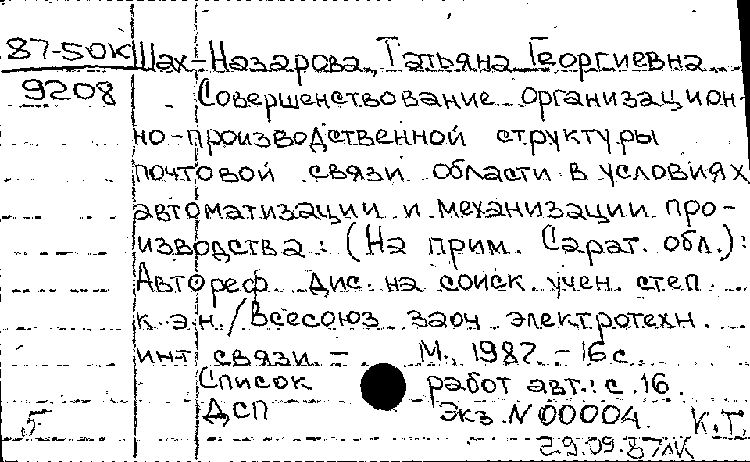 87-50к Шах-Назарова, Татьяна Георгиевна
9208 Совершенствование организацион-
но-производственной структуры
почтовой связи области в условиях
автоматизации и механизации про-
изводства: (На прим. Сарат. обл.):
Автореф. дис. на соиск. учен. степ.
к.э.н. / Всесоюз. заоч. электротехн.
инт связи. – М., 1987. – 16 с.
Список работ авт.: с. 16.
ДСП Экз. N 00004. К.Т.
5
29.09.87